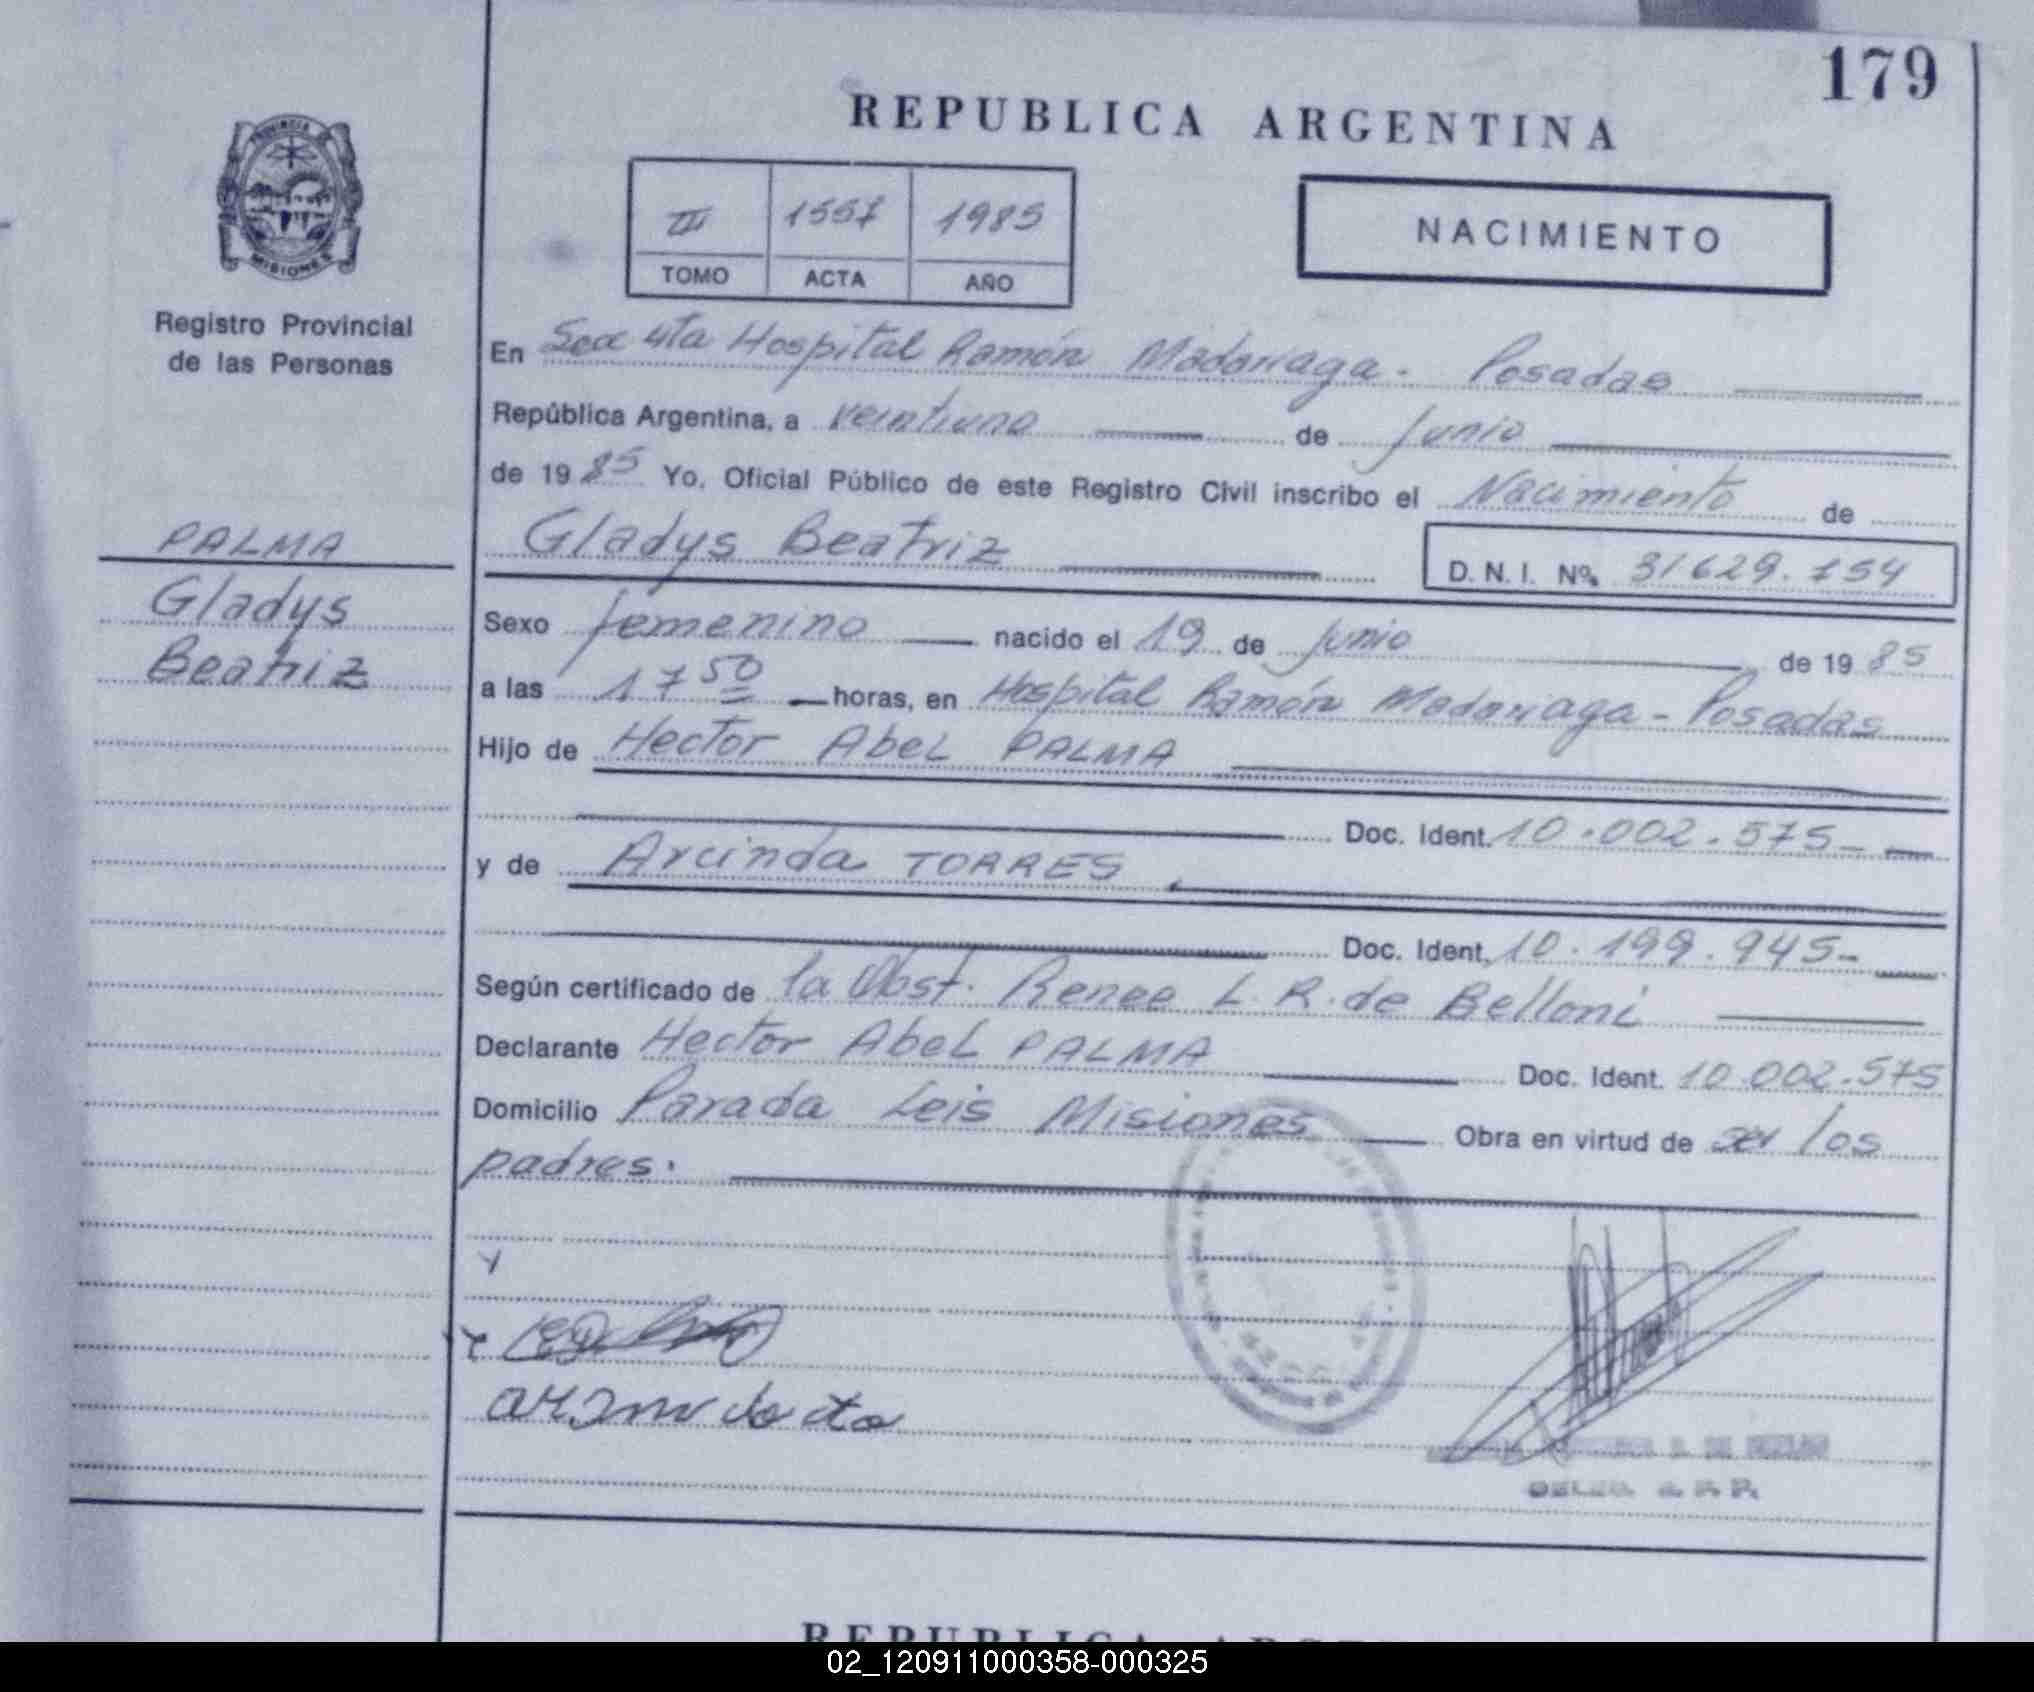 179
REPUBLICA ARGENTINA
PROVINCIA DE
MISIONES
Registro Provincial
de las Personas
III 1557 1985
TOMO ACTA AÑO
NACIMIENTO
En Secc 4ta Hospital Ramón Madariaga - Posadas
República Argentina, a veintiuno de Junio
de 1985 Yo, Oficial Público de este Registro Civil inscribo el Nacimiento de
Gladys Beatriz D. N. I. Nº 31629.754
PALMA
Gladys
Beatriz
Sexo femenino nacido el 19 de Junio de 1985
a las 17 50 horas, en Hospital Ramón Madariaga - Posadas
Hijo de Hector Abel PALMA
Doc. Ident. 10.002.575-
y de Arcinda TORRES
Doc. Ident. 10.199.945-
Según certificado de la Obst. Renee L. R. de Belloni
Declarante Hector Abel PALMA Doc. Ident. 10.002.575
Domicilio Parada Leis Misiones Obra en virtud de ser los
padres.
REPUBLICA
02_120911000358-000325